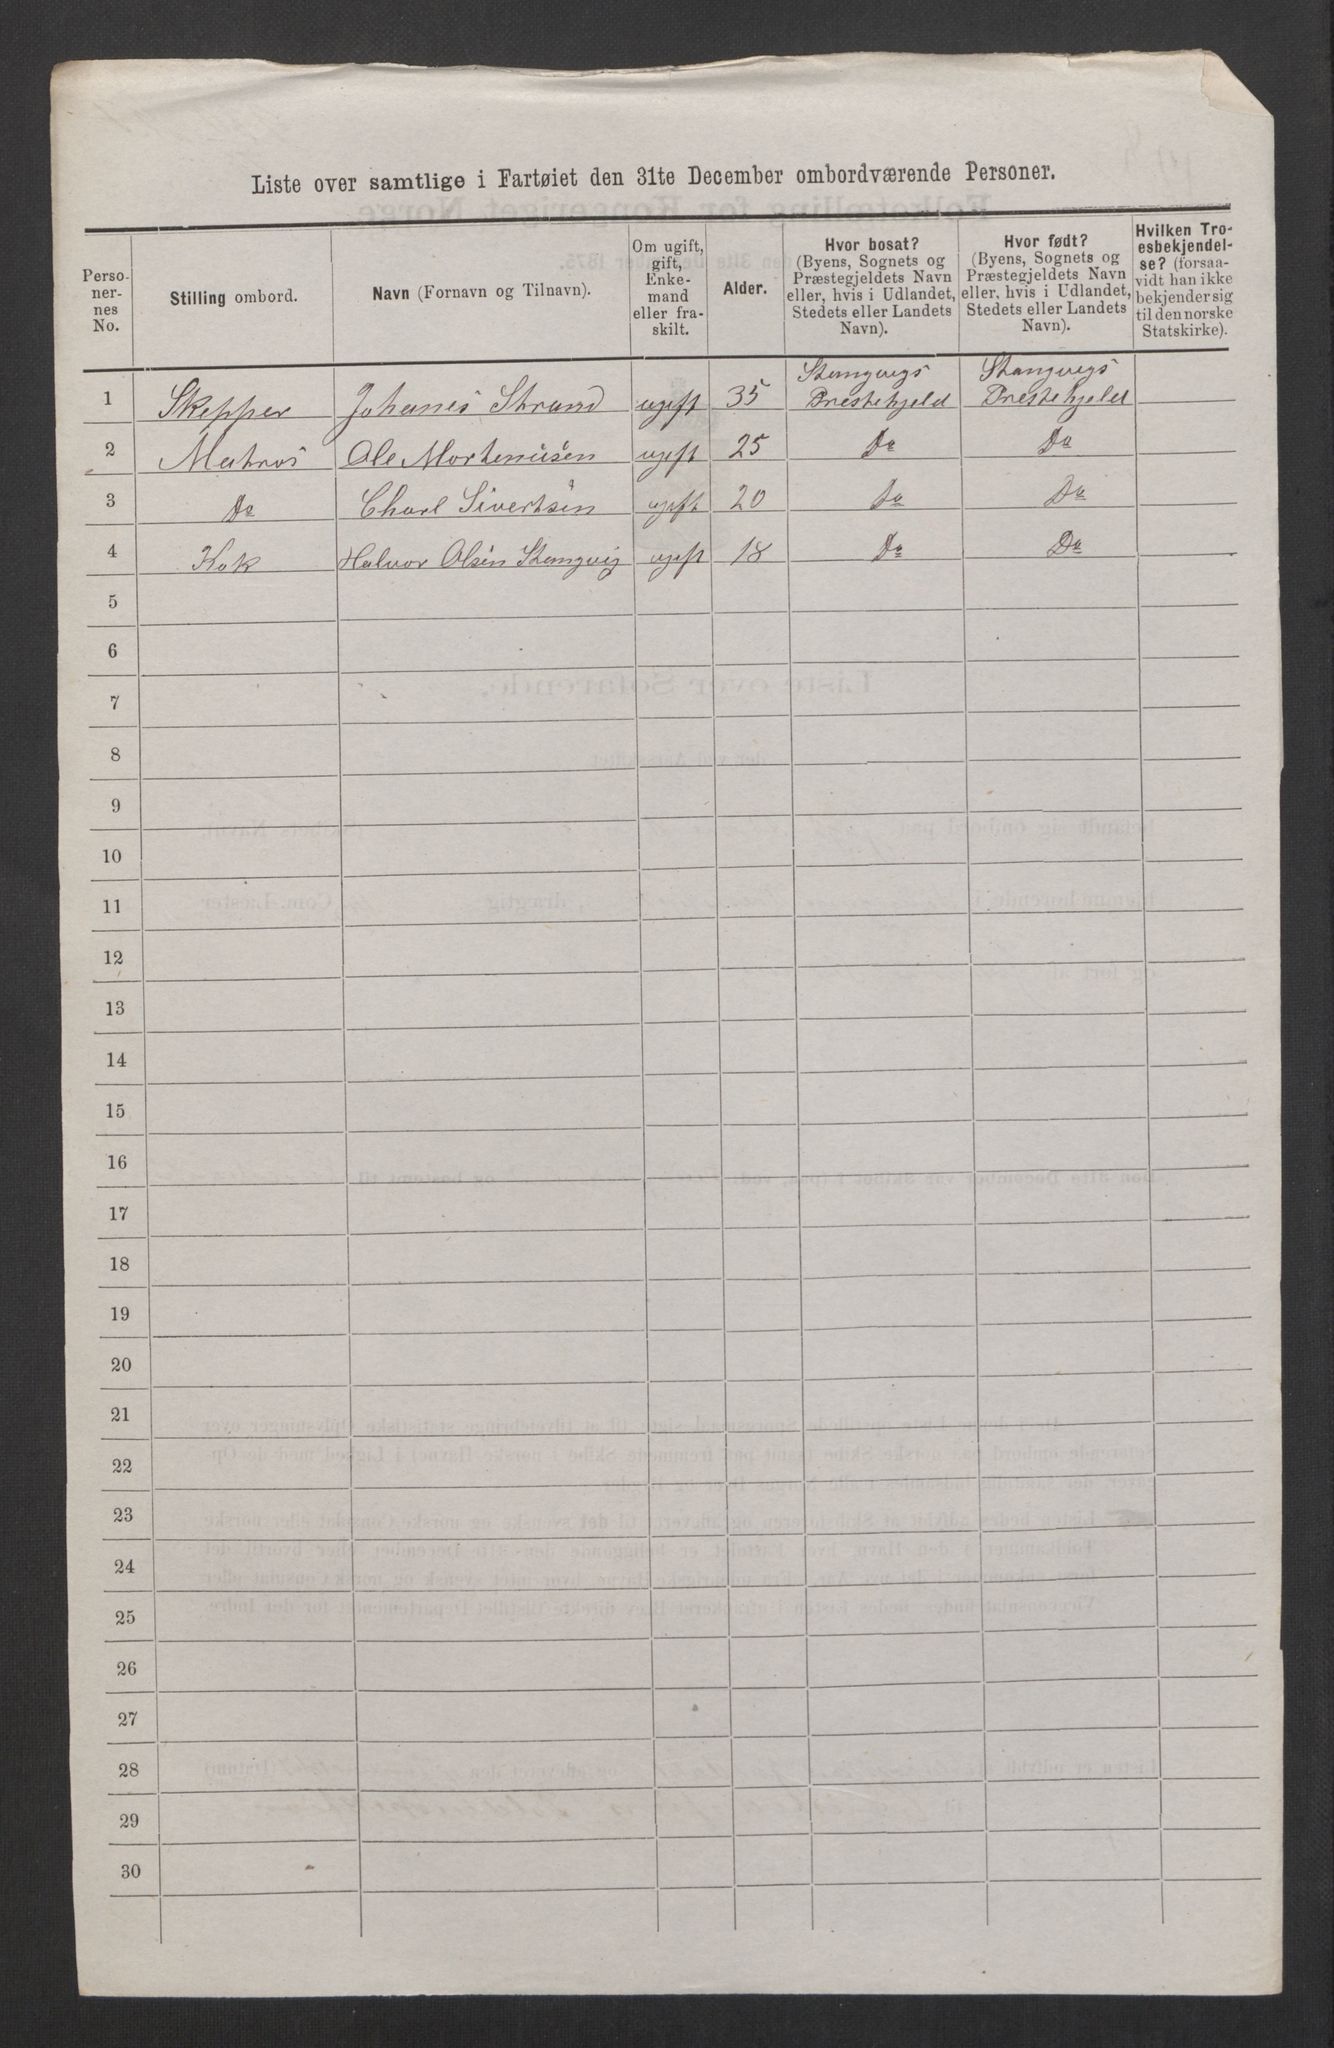 Liste over samtlige i Fartøiet den 31te December ombordværende Personer.
Perso-
ner-
nes
No.
Stilling ombord.
Navn (Fornavn og Tilnavn).
Om ugift,
gift,
Enke-
mand
eller fra-
skilt.
Alder.
Hvor bosat?
(Byens, Sognets og
Præstegjeldets Navn
eller, hvis i Udlandet,
Stedets eller Landets
Navn).
Hvor født?
(Byens, Sognets og
Præstegjeldets Navn
eller, hvis i Udlandet,
Stedets eller Landets
Navn).
Hvilken Tro-
esbekjendel-
se? (forsaa-
vidt han ikke
bekjender sig
til den norske
Statskirke).
1 Skepper Johanes Strand ugift 35 Stangvigs Prestehjeld Stangvigs Prestehjeld
2 Matros Ole Mortenusen ugift 25 Do Do
3 Do Charl Sivertsen ugift 20 Do Do
4 Kok Halvor Olsen Stangvig ugift 18 Do Do
5
6
7
8
9
10
11
12
13
14
15
16
17
18
19
20
21
22
23
24
25
26
27
28
29
30